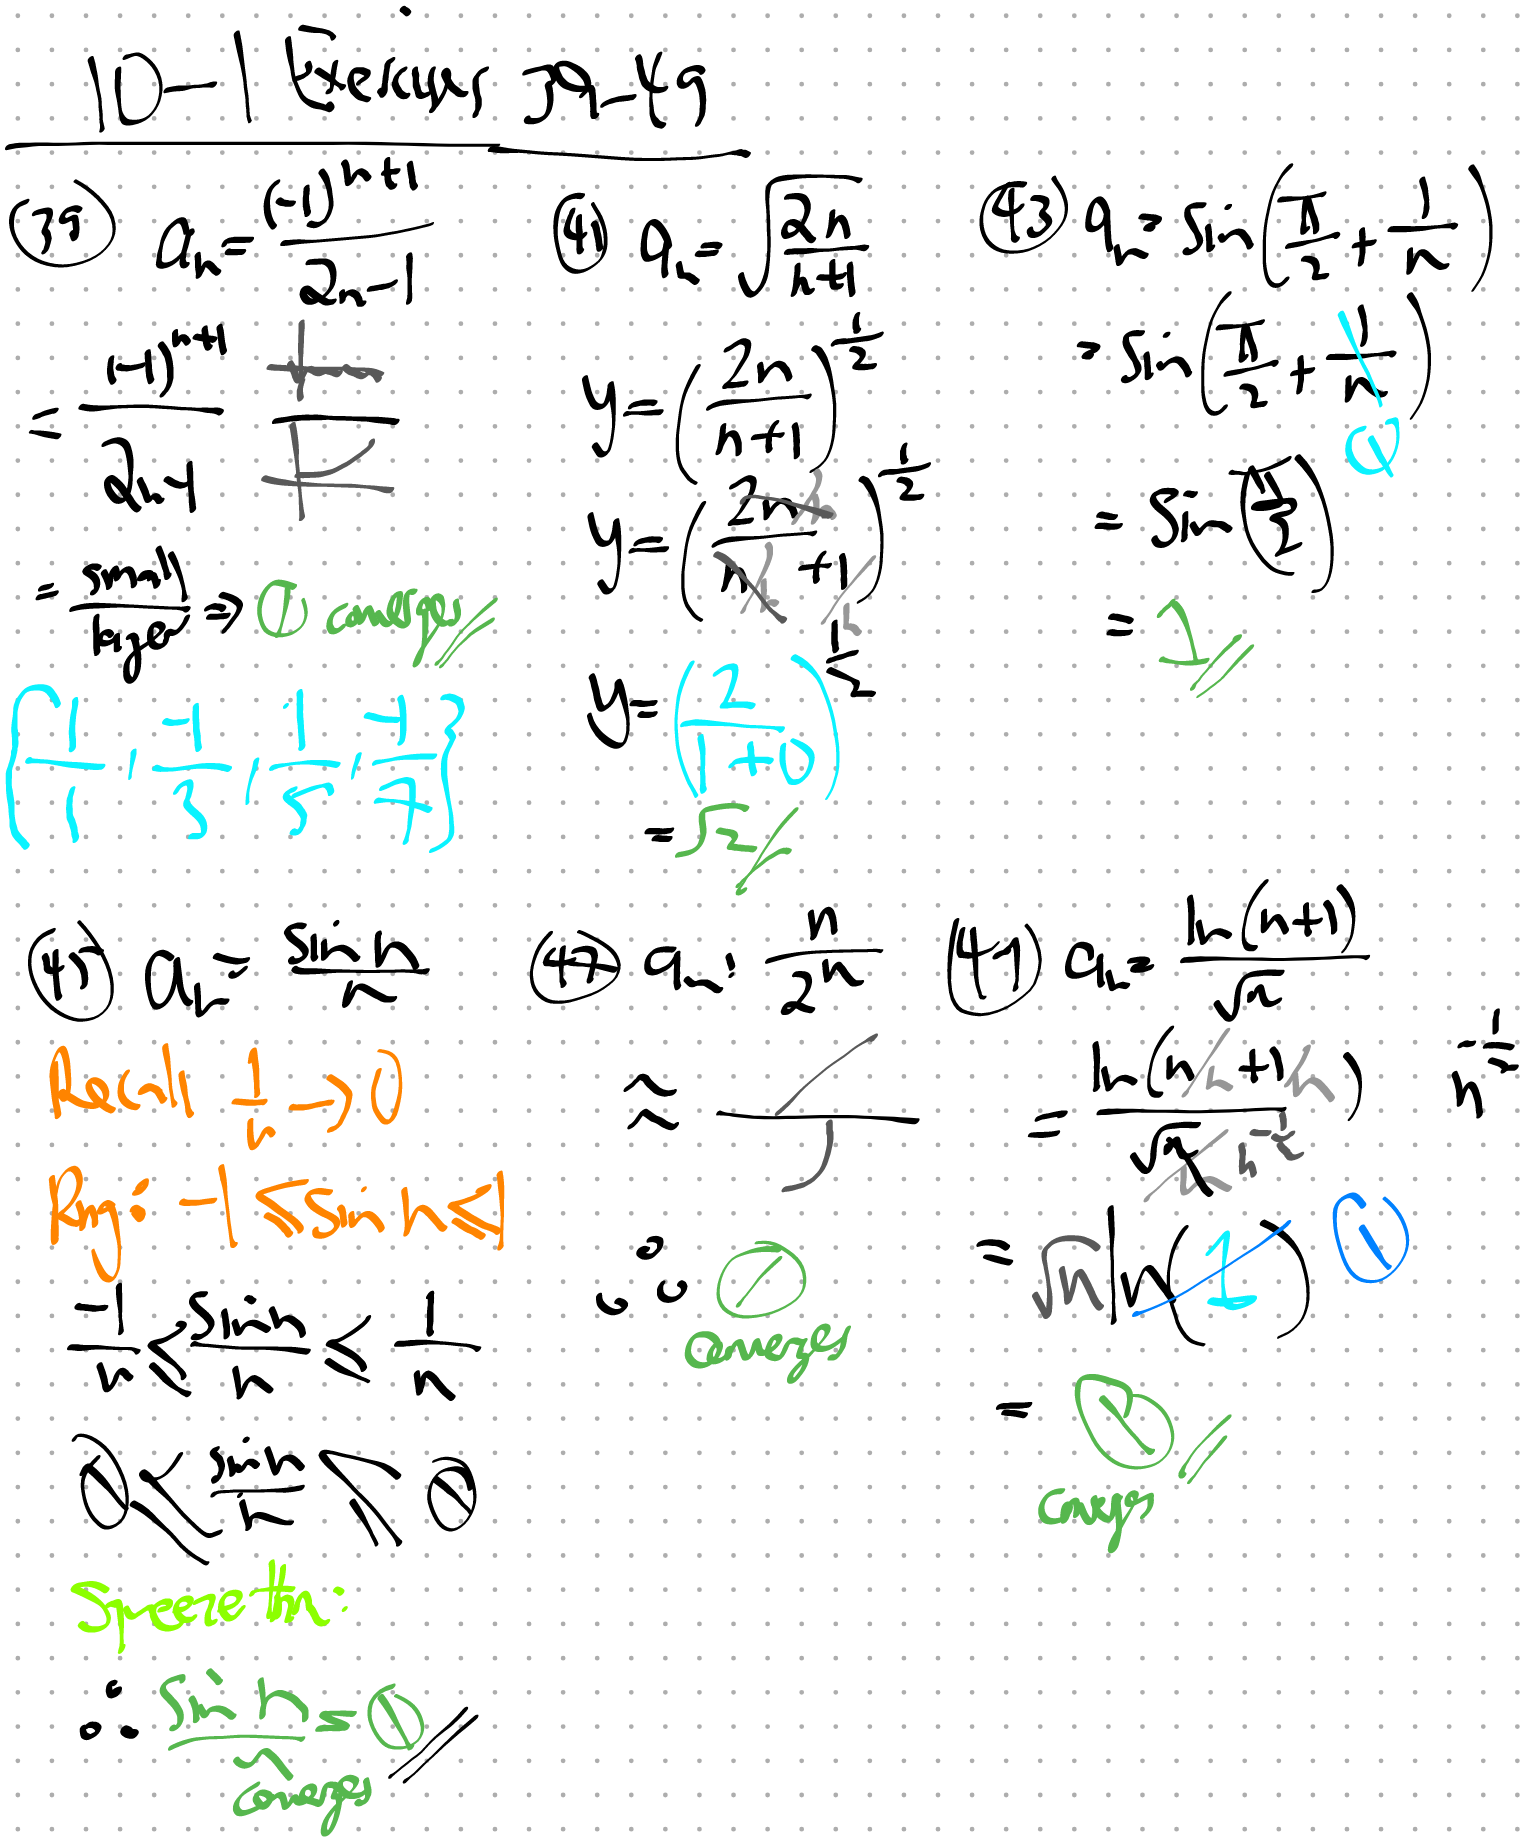 10-1 Exercises 39-49
(39) aₙ = (-1)ⁿ⁺¹ / 2n-1
= (-1)ⁿ⁺¹ / 2n-1
= small / large => 0 converges
{ 1/1, -1/3, 1/5, -1/7 }
(41) aₙ = √(2n / n+1)
y = (2n / n+1)^(1/2)
y = (2n/n / n/n + 1/n)^(1/2)
y = (2 / 1+0)^(1/2)
= √2
(43) aₙ = sin(π/2 + 1/n)
= sin(π/2 + 1/n) 0
= sin(π/2)
= 1
(45) aₙ = sin n / n
Recall 1/n → 0
Rng: -1 ≤ sin n ≤ 1
-1/n ≤ sin n / n ≤ 1/n
0 < sin n / n > 0
Sqeeze thm:
∴ sin n / n = 0
converges
(47) aₙ: n / 2ⁿ
≈
∴ 0
Converges
(49) aₙ = ln(n+1) / √n
= ln(n/n + 1/n) / √n/n n^(-1/2)
n^(-1/2)
= √n ln(1) 0
= 0
converges